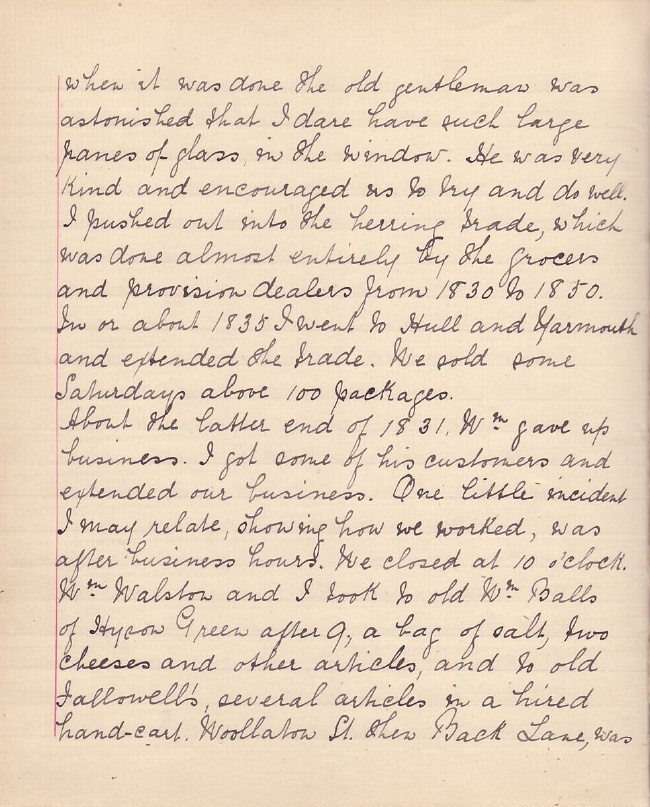 when it was done the old gentleman was
astonished that I dare have such large
panes of glass in the window. He was very
kind and encouraged us to try and do well.
I pushed out into the herring trade, which
was done almost entirely by the grocers
and provision dealers from 1830 to 1850.
In or about 1835 I went to Hull and Yarmouth
and extended the trade. We sold some
Saturdays above 100 packages.
About the latter end of 1831, Wm gave up
business. I got some of his customers and
extended our business. One little incident
I may relate, showing how we worked, was
after business hours. We closed at 10 o'clock.
Wm Walston and I took to old Wm Balls
of Hyson Green after 9, a bag of salt, two
cheeses and other articles, and to old
Fallowell's, several articles in a hired
hand-cart. Woollaton St. then Back Lane, was